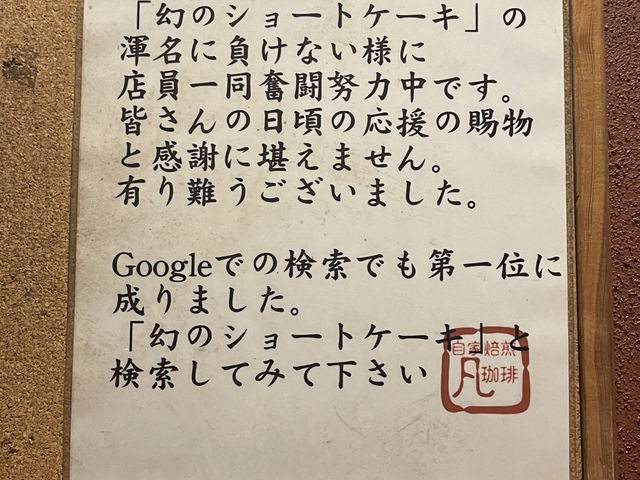 「幻のショートケーキ」の
渾名に負けない様に
店員一同奮闘努力中です。
皆さんの日頃の応援の賜物
と感謝に堪えません。
有り難うございました。
Googleでの検索でも第一位に
成りました。
「幻のショートケーキ」と
検索してみて下さい
自家焙煎
凡珈琲